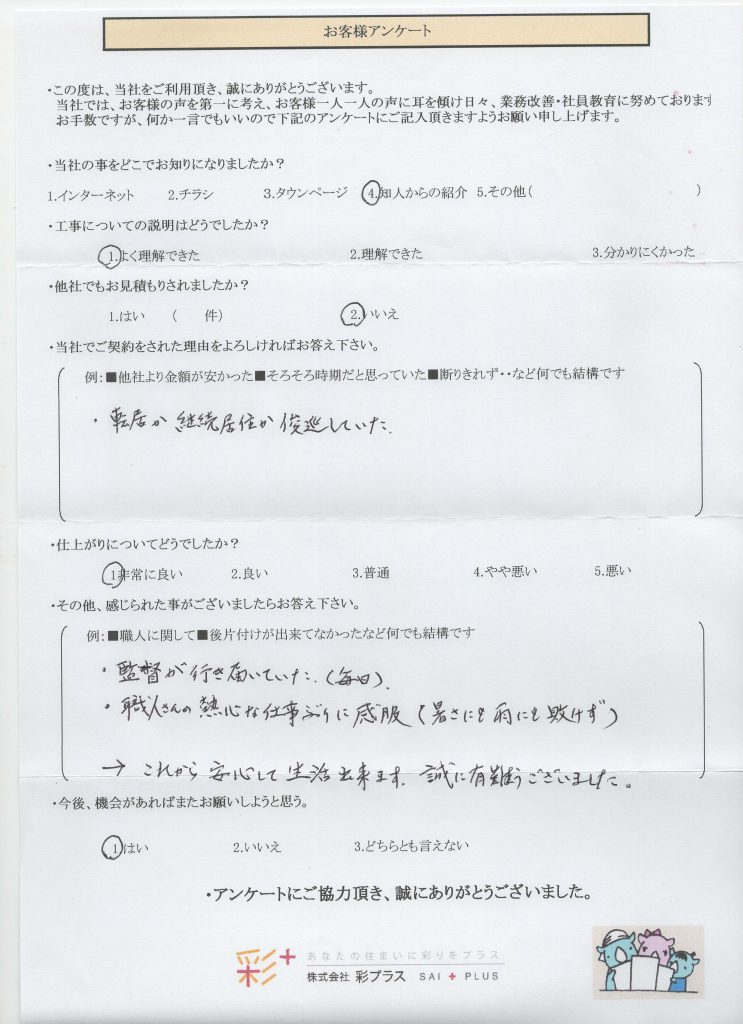 お客様アンケート
・この度は、当社をご利用頂き、誠にありがとうございます。
当社では、お客様の声を第一に考え、お客様一人一人の声に耳を傾け日々、業務改善・社員教育に努めております
お手数ですが、何か一言でもいいので下記のアンケートにご記入頂きますようお願い申し上げます。
・当社の事をどこでお知りになりましたか？
1.インターネット 2.チラシ 3.タウンページ 4.知人からの紹介 5.その他( )
・工事についての説明はどうでしたか？
1.よく理解できた 2.理解できた 3.分かりにくかった
・他社でもお見積もりされましたか？
1.はい ( 件) 2.いいえ
・当社でご契約をされた理由をよろしければお答え下さい。
例：■他社より金額が安かった■そろそろ時期だと思っていた■断りきれず・・など何でも結構です
・転居か継続居住か俊巡していた.
・仕上がりについてどうでしたか？
1非常に良い 2.良い 3.普通 4.やや悪い 5.悪い
・その他、感じられた事がございましたらお答え下さい。
例：■職人に関して■後片付けが出来てなかったなど何でも結構です
・監督が行き届いていた.(毎日).
・職人さんの熱心な仕事ぶりに感服(暑さにも雨にも敗けず)
→ これから安心して生活出来ます. 誠に有難うございました。
・今後、機会があればまたお願いしようと思う。
1はい 2.いいえ 3.どちらとも言えない
・アンケートにご協力頂き、誠にありがとうございました。
彩+ あなたの住まいに彩りをプラス
株式会社 彩プラス SAI + PLUS